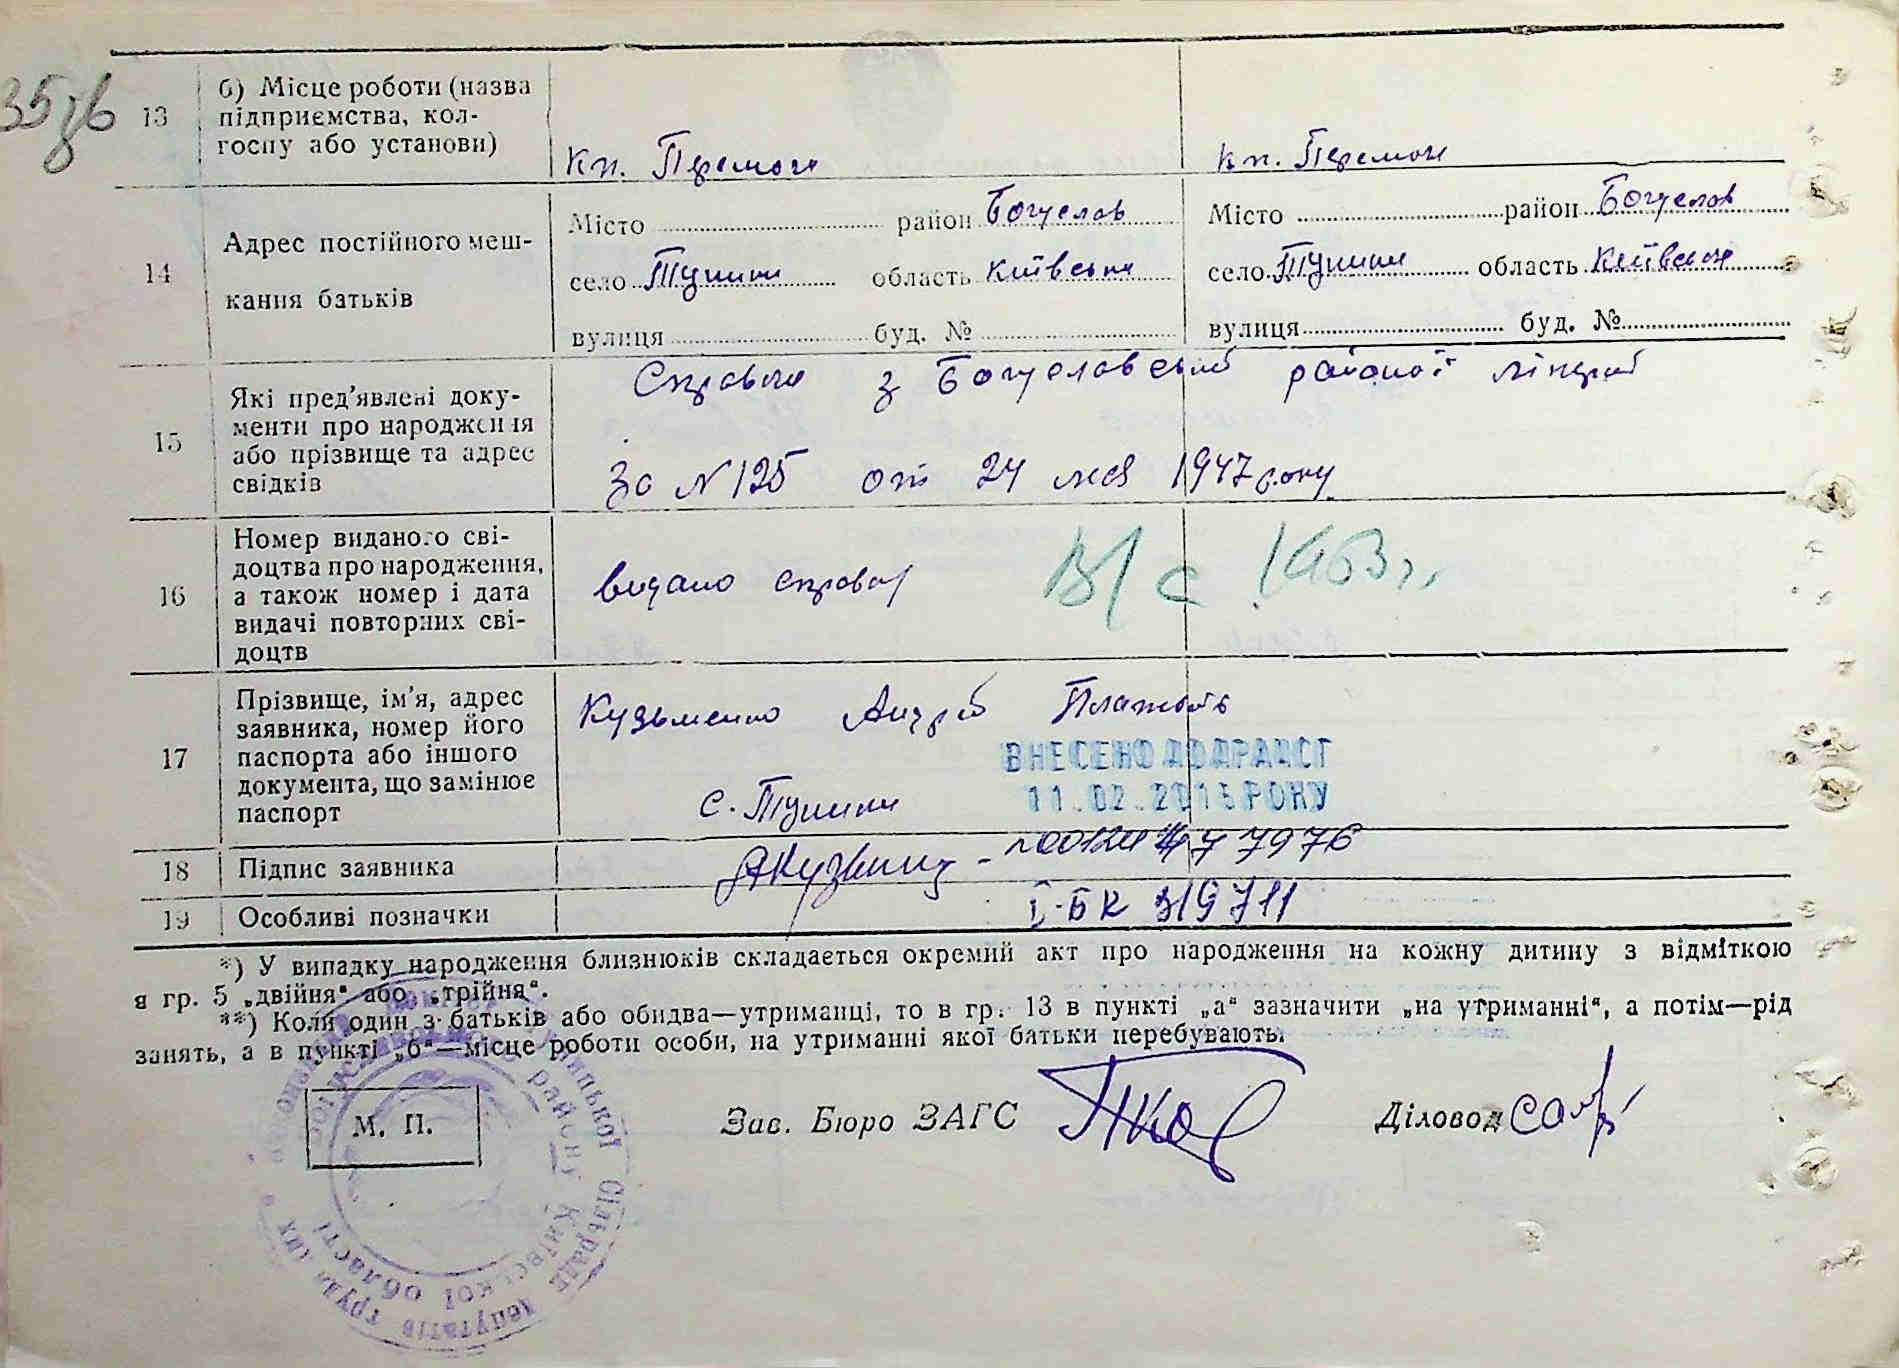 35зв
13
б) Місце роботи (назва
підприємства, кол-
госпу або установи)
Кп. Перемоги
Кп. Перемоги
14
Адрес постійного меш-
кання батьків
Місто район Богуслав
село Тушини область Київська
вулиця буд. №
Місто район Богуслав
село Тушини область Київська
вулиця буд. №
15
Які пред'явлені доку-
менти про народження
або прізвище та адрес
свідків
Справка з Богуславської районої лікарні
За №125 от 24 мая 1947 року
16
Номер виданого сві-
доцтва про народження,
а також номер і дата
видачі повторних сві-
доцтв
видано справку
В/с 1963 г.
17
Прізвище, ім'я, адрес
заявника, номер його
паспорта або іншого
документа, що замінює
паспорт
Кузьменко Андрій
с. Тушини
ВНЕСЕНО ДО ДРАЦСГ
11.02.2015 РОКУ
18
Підпис заявника
19
Особливі позначки
І-БК 319711
*) У випадку народження близнюків складається окремий акт про народження на кожну дитину з відміткою
я гр. 5 „двійня“ або „трійня“.
**) Коли один з батьків або обидва—утриманці, то в гр. 13 в пункті „а“ зазначити „на утриманні“, а потім—рід
занять, а в пункті „б“—місце роботи особи, на утриманні якої батьки перебувають.
М. П.
Зав. Бюро ЗАГС
Діловод
сільради депутатів трудящих
району Київської області